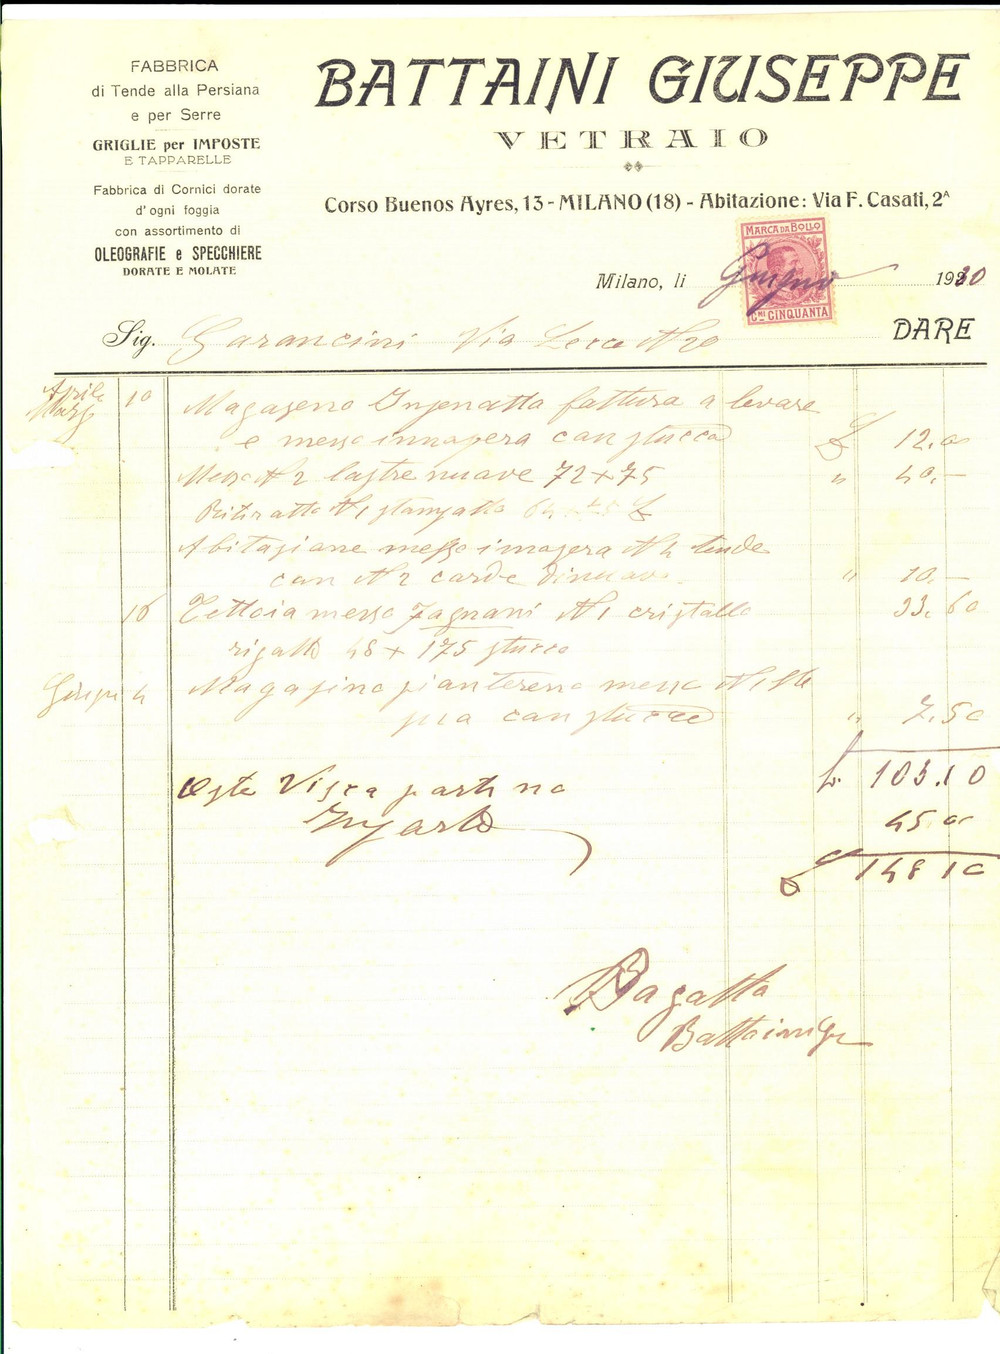 FABBRICA
di Tende alla Persiana
e per Serre
GRIGLIE per IMPOSTE
E TAPPARELLE
Fabbrica di Cornici dorate
d'ogni foggia
con assortimento di
OLEOGRAFIE e SPECCHIERE
DORATE E MOLATE
BATTAINI GIUSEPPE
VETRAIO
Corso Buenos Ayres, 13 - MILANO (18) - Abitazione: Via F. Casati, 2A
MARCA DA BOLLO
CMI CINQUANTA
Milano, li Giugno 1920
Sig. Garancini Via Lecco N 20 DARE
Aprile
10 fattura a levare
e messo innopera con stucco £ 12.00
Messo N 2 lastre nuove 72 + 75 " 40.-
Ritiratto N 1 stampatto
Abitazione messo inopera N 2 tende
con N 2 corde " 10.-
16 Tettoia messo N 1 cristallo 33.60
rigatto 48 + 175 stucco
4 Magazino piantereno messo N 1
con stucco " 7.50
L. 103.10
45.00
£ 148 10
Pagatto
Battaini G